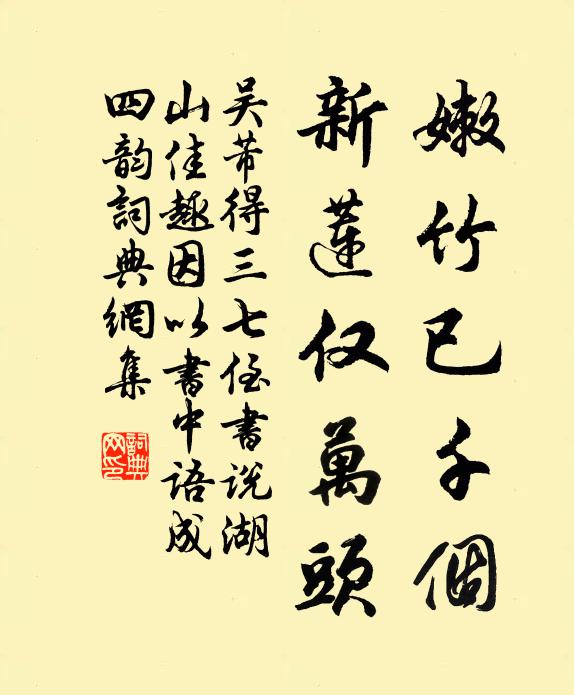 嫩竹已千個
新蓮仅萬頭
吴芾得三七侄書说湖
山佳趣因以書中語成
四韵詞典網集
詞典網印